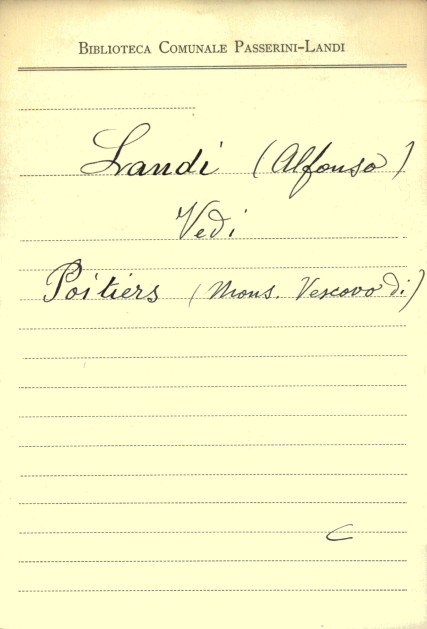 BIBLIOTECA COMUNALE PASSERINI-LANDI
Landi (Alfonso)
Vedi
Poitiers (Mons. Vescovo di)
C